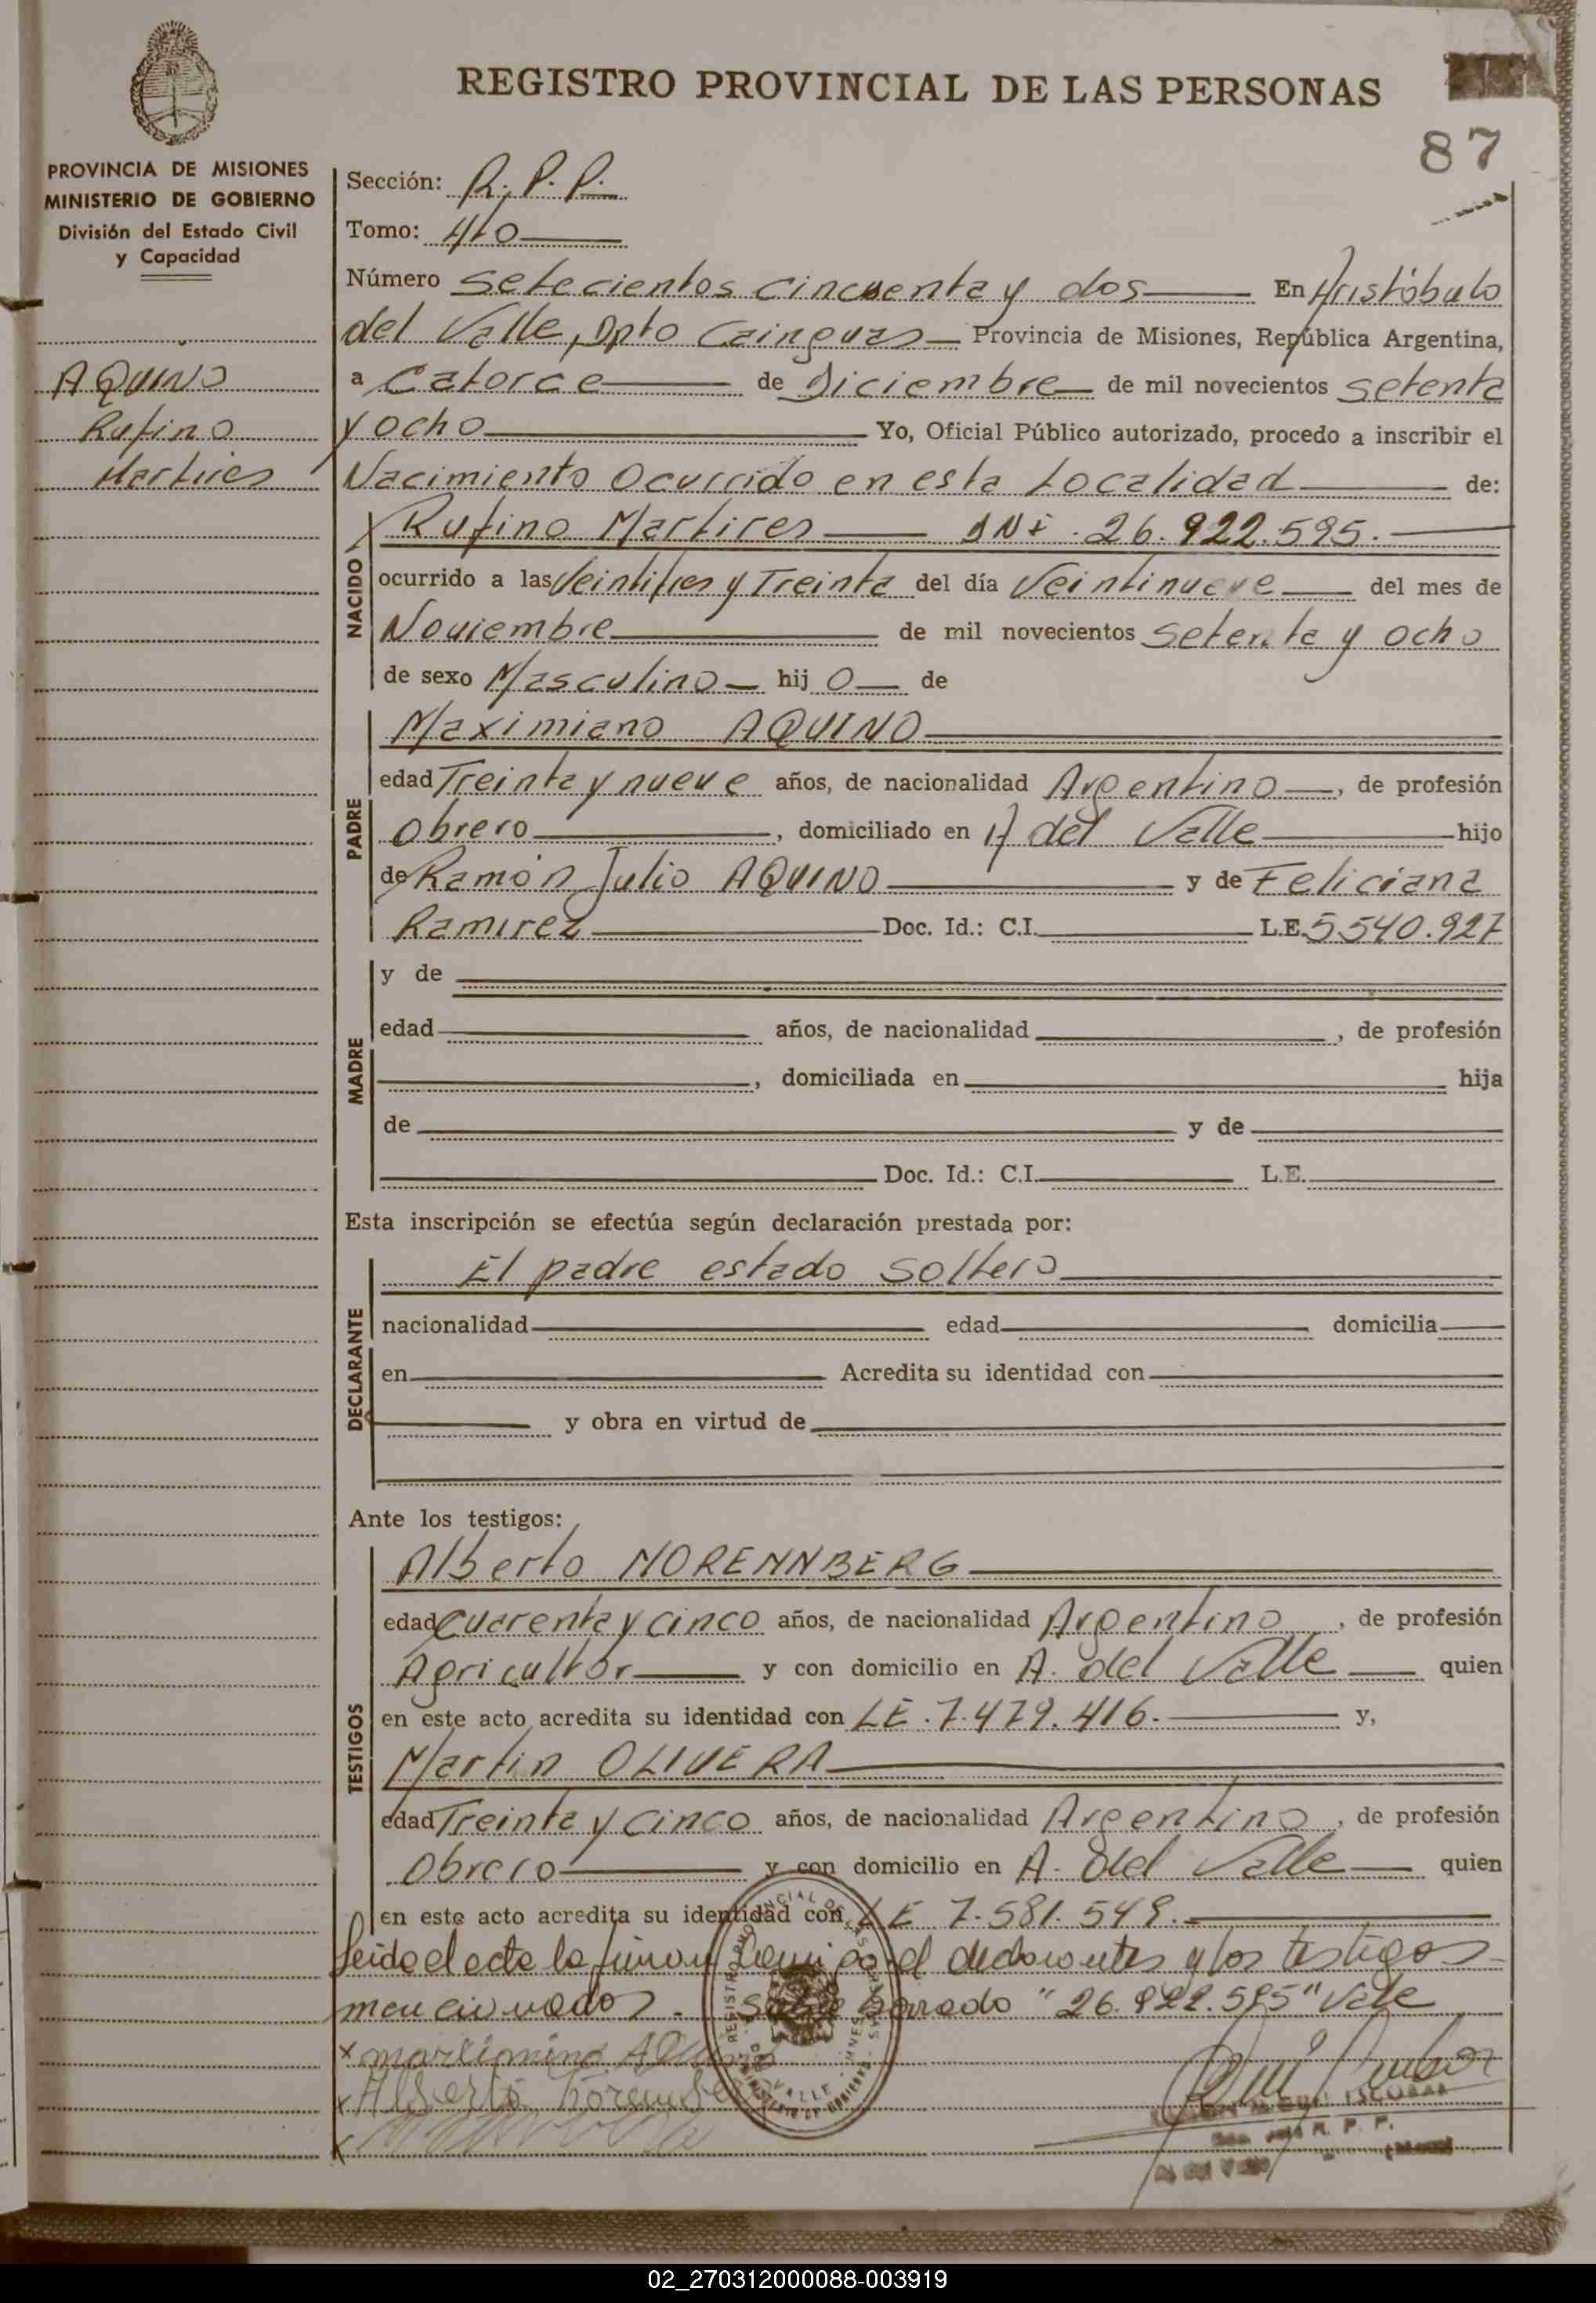 REGISTRO PROVINCIAL DE LAS PERSONAS
87
PROVINCIA DE MISIONES
MINISTERIO DE GOBIERNO
División del Estado Civil
y Capacidad
AQUINO
Rufino
Martires
Sección: R. P. P.
Tomo: 4to
Número Setecientos cincuenta y dos En Aristóbulo
del Valle, Dpto Cainguas Provincia de Misiones, República Argentina,
a Catorce de Diciembre de mil novecientos setenta
y ocho Yo, Oficial Público autorizado, procedo a inscribir el
Nacimiento Ocurrido en esta Localidad de:
NACIDO
Rufino Martires DNI. 26.922.595.
ocurrido a las Veintitres y Treinta del día Veintinueve del mes de
Noviembre de mil novecientos setenta y ocho
de sexo Masculino hij o de
PADRE
Maximiano AQUINO
edad Treinta y nueve años, de nacionalidad Argentino, de profesión
Obrero, domiciliado en A del Valle hijo
de Ramón Julio AQUINO y de Feliciana
Ramirez Doc. Id.: C.I. L.E. 5.540.927
MADRE
y de
edad años, de nacionalidad , de profesión
, domiciliada en hija
de y de
Doc. Id.: C.I. L.E.
Esta inscripción se efectúa según declaración prestada por:
DECLARANTE
El padre estado Soltero
nacionalidad edad domicilia
en Acredita su identidad con
y obra en virtud de
Ante los testigos:
TESTIGOS
Alberto NORENNBERG
edad cuarenta y cinco años, de nacionalidad Argentino, de profesión
Agricultor y con domicilio en A. del Valle quien
en este acto acredita su identidad con LE. 7.479.416. y,
Martin OLIVERA
edad Treinta y cinco años, de nacionalidad Argentino, de profesión
Obrero y con domicilio en A. del Valle quien
en este acto acredita su identidad con LE 7.581.549.
Leida el acta la firman conmigo el declarantes y los testigos
mencionados. Sobre borado "26.922.595" Vale
ESCOBAR
R. P. P.
02_270312000088-003919